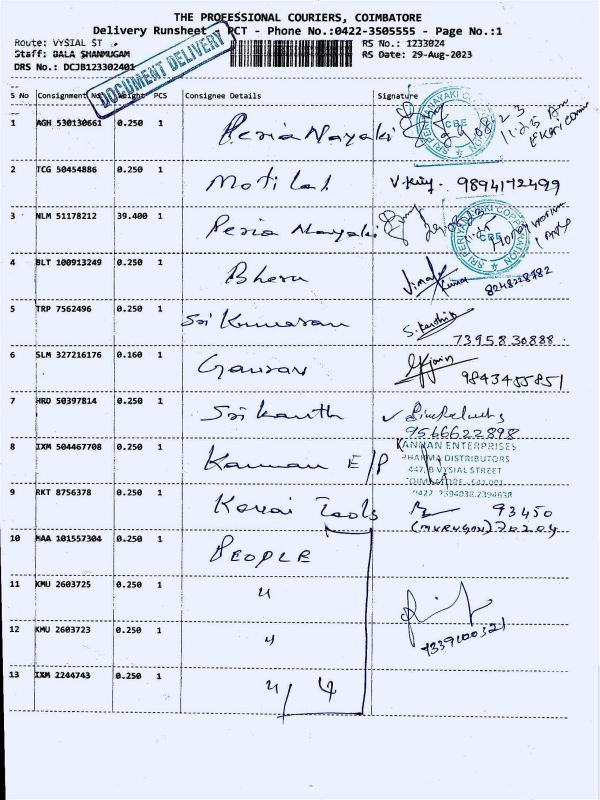 THE PROFESSIONAL COURIERS, COIMBATORE
Delivery Runsheet PCT - Phone No.:0422-3505555 - Page No.:1
Route: VYSIAL ST
RS No.: 1233024
Staff: BALA SHANMUGAM
RS Date: 29-Aug-2023
DRS No.: DCJB123302401
DOCUMENT DELIVERY
S No Consignment No Weight PCS Consignee Details Signature
1 AGH 530130661 0.250 1 Peria Nayaki 11:25 Am
2 TCG 50454886 0.250 1 Motilal 9894172499
3 NLM 51178212 39.400 1 Peria Nayaki
SRI PERIYANAYAKI CORPORATION CBE
4 BLT 100913249 0.250 1 8248228782
5 TRP 7562496 0.250 1 Sri Kumaran S. Karthik
73958 30888
6 SLM 327216176 0.160 1 Gaurav
9843455851
7 HRD 50397814 0.250 1 Sri Kanth
9566622898
8 IXM 504467708 0.250 1 Kannan E/P
KANNAN ENTERPRISES
PHARMA DISTRIBUTORS
447, B VYSIAL STREET
COIMBATORE - 641 001
0422 2394038,2394638
9 RKT 8756378 0.250 1 Tools 93450
(MURUGAN) 70204
10 MAA 101557304 0.250 1 PEOPLE
11 KMU 2603725 0.250 1 "
12 KMU 2603723 0.250 1 "
7339100321
13 IXM 2244743 0.250 1 " / 4